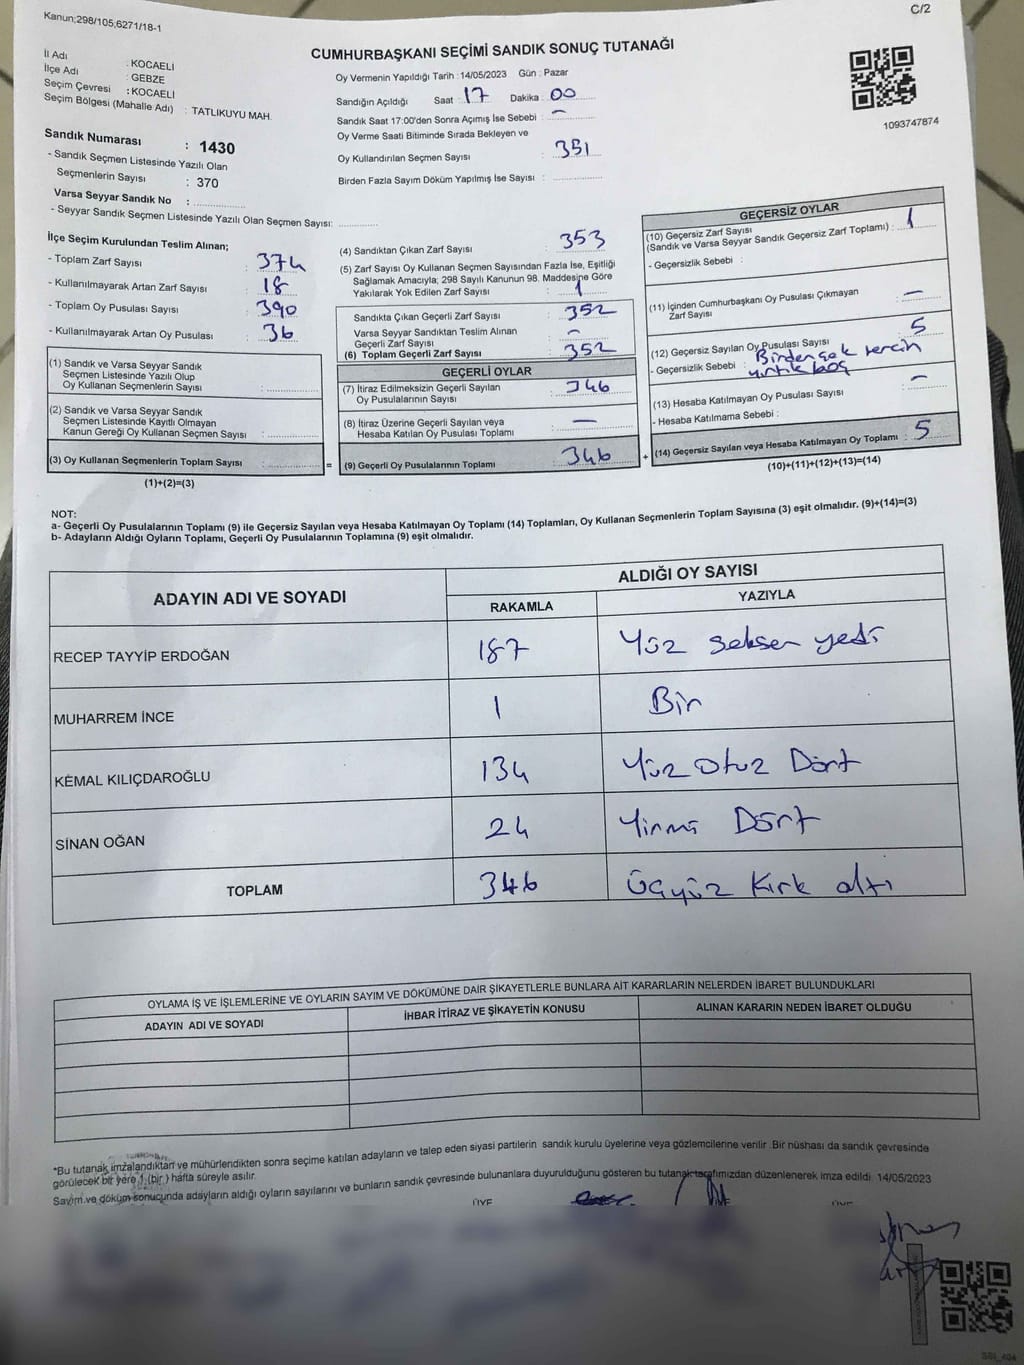 Kanun;298/105;6271/18-1
C/2
CUMHURBAŞKANI SEÇİMİ SANDIK SONUÇ TUTANAĞI
İl Adı : KOCAELİ
İlçe Adı : GEBZE
Seçim Çevresi : KOCAELİ
Seçim Bölgesi (Mahalle Adı) : TATLIKUYU MAH.
Sandık Numarası : 1430
- Sandık Seçmen Listesinde Yazılı Olan
Seçmenlerin Sayısı : 370
Varsa Seyyar Sandık No :
- Seyyar Sandık Seçmen Listesinde Yazılı Olan Seçmen Sayısı:
Oy Vermenin Yapıldığı Tarih : 14/05/2023 Gün : Pazar
Sandığın Açıldığı Saat : 17 Dakika : 00
Sandık Saat 17:00'den Sonra Açımış İse Sebebi : -
Oy Verme Saati Bitiminde Sırada Bekleyen ve
Oy Kullandırılan Seçmen Sayısı : 351
Birden Fazla Sayım Döküm Yapılmış İse Sayısı :
1093747874
İlçe Seçim Kurulundan Teslim Alınan;
- Toplam Zarf Sayısı : 374
- Kullanılmayarak Artan Zarf Sayısı : 18
- Toplam Oy Pusulası Sayısı : 390
- Kullanılmayarak Artan Oy Pusulası : 36
(1) Sandık ve Varsa Seyyar Sandık
Seçmen Listesinde Yazılı Olup
Oy Kullanan Seçmenlerin Sayısı :
(2) Sandık ve Varsa Seyyar Sandık
Seçmen Listesinde Kayıtlı Olmayan
Kanun Gereği Oy Kullanan Seçmen Sayısı :
(3) Oy Kullanan Seçmenlerin Toplam Sayısı :
(1)+(2)=(3)
=
(4) Sandıktan Çıkan Zarf Sayısı : 353
(5) Zarf Sayısı Oy Kullanan Seçmen Sayısından Fazla İse, Eşitliği
Sağlamak Amacıyla; 298 Sayılı Kanunun 98. Maddesine Göre
Yakılarak Yok Edilen Zarf Sayısı : 1
Sandıkta Çıkan Geçerli Zarf Sayısı : 352
Varsa Seyyar Sandıktan Teslim Alınan
Geçerli Zarf Sayısı : -
(6) Toplam Geçerli Zarf Sayısı : 352
GEÇERLİ OYLAR
(7) İtiraz Edilmeksizin Geçerli Sayılan
Oy Pusulalarının Sayısı : 346
(8) İtiraz Üzerine Geçerli Sayılan veya
Hesaba Katılan Oy Pusulası Toplamı : —
(9) Geçerli Oy Pusulalarının Toplamı : 346
+
GEÇERSİZ OYLAR
(10) Geçersiz Zarf Sayısı
(Sandık ve Varsa Seyyar Sandık Geçersiz Zarf Toplamı) : 1
- Geçersizlik Sebebi :
(11) İçinden Cumhurbaşkanı Oy Pusulası Çıkmayan
Zarf Sayısı : -
(12) Geçersiz Sayılan Oy Pusulası Sayısı : 5
- Geçersizlik Sebebi : Birden çok tercih
yırtık boş
(13) Hesaba Katılmayan Oy Pusulası Sayısı : -
- Hesaba Katılmama Sebebi :
(14) Geçersiz Sayılan veya Hesaba Katılmayan Oy Toplamı : 5
(10)+(11)+(12)+(13)=(14)
NOT:
a- Geçerli Oy Pusulalarının Toplamı (9) ile Geçersiz Sayılan veya Hesaba Katılmayan Oy Toplamı (14) Toplamları, Oy Kullanan Seçmenlerin Toplam Sayısına (3) eşit olmalıdır. (9)+(14)=(3)
b- Adayların Aldığı Oyların Toplamı, Geçerli Oy Pusulalarının Toplamına (9) eşit olmalıdır.
ADAYIN ADI VE SOYADI
ALDIĞI OY SAYISI
RAKAMLA YAZIYLA
RECEP TAYYİP ERDOĞAN 187 Yüz seksen yedi
MUHARREM İNCE 1 Bir
KEMAL KILIÇDAROĞLU 134 Yüz Otuz Dört
SİNAN OĞAN 24 Yirmi Dört
TOPLAM 346 Üçyüz Kırk altı
OYLAMA İŞ VE İŞLEMLERİNE VE OYLARIN SAYIM VE DÖKÜMÜNE DAİR ŞİKAYETLERLE BUNLARA AİT KARARLARIN NELERDEN İBARET BULUNDUKLARI
ADAYIN ADI VE SOYADI İHBAR İTİRAZ VE ŞİKAYETİN KONUSU ALINAN KARARIN NEDEN İBARET OLDUĞU
*Bu tutanak imzalandıktan ve mühürlendikten sonra seçime katılan adayların ve talep eden siyasi partilerin sandık kurulu üyelerine veya gözlemcilerine verilir .Bir nüshası da sandık çevresinde
görülecek bir yere 1 (bir ) hafta süreyle asılır.
Sayım ve döküm sonucunda adayların aldığı oyların sayılarını ve bunların sandık çevresinde bulunanlara duyurulduğunu gösteren bu tutanak tarafımızdan düzenlenerek imza edildi. 14/05/2023
ÜYE ÜYE